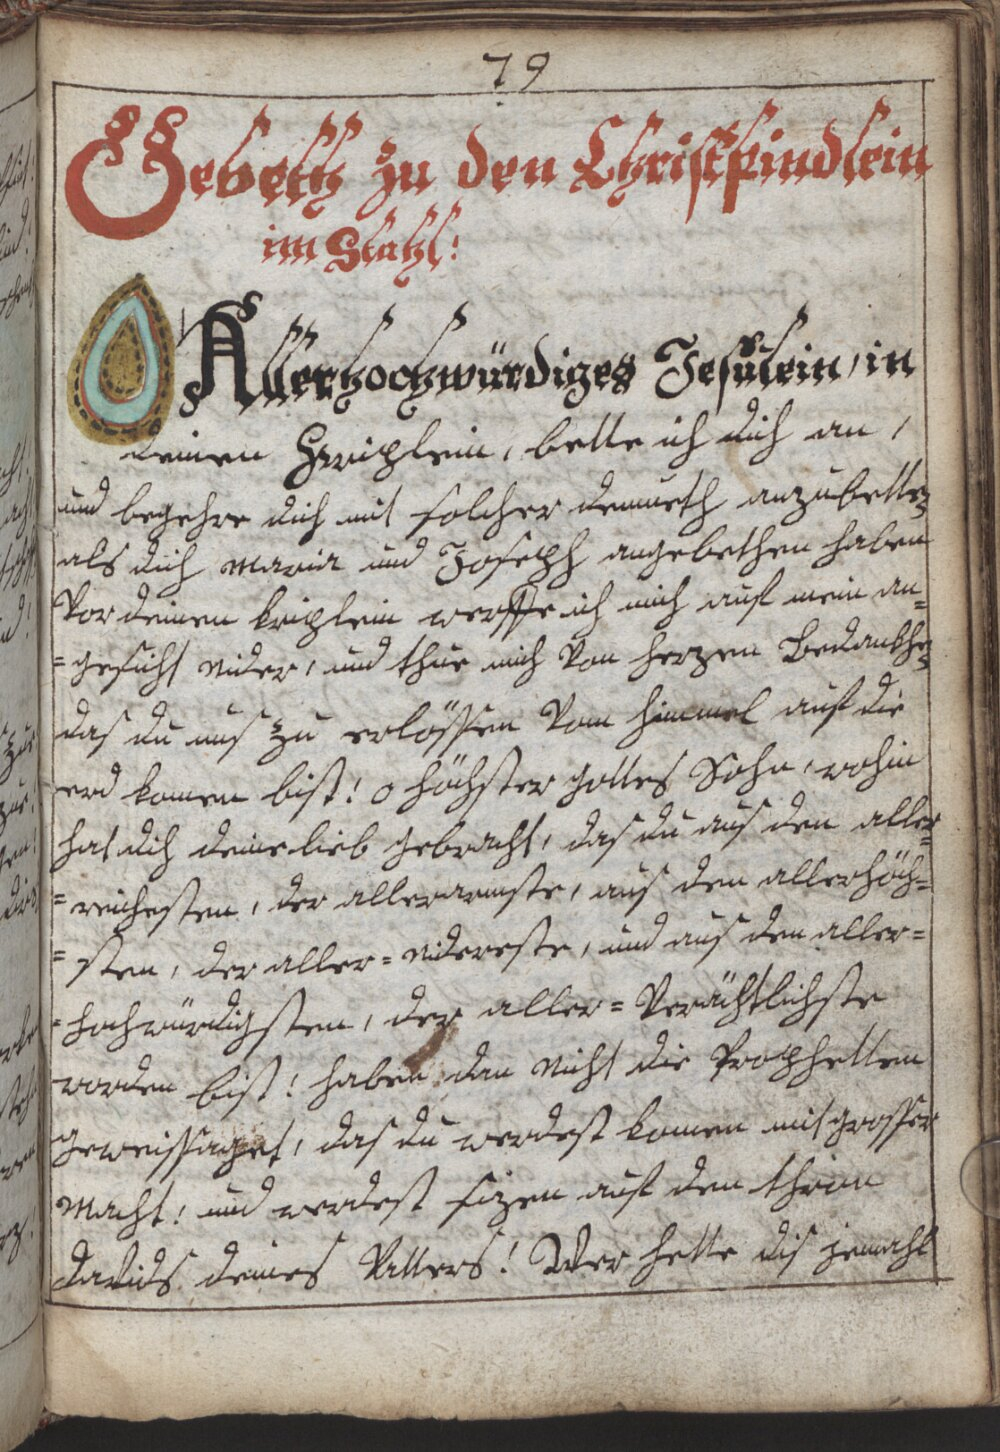 79
Gebett zu den Christkindlein
im Stahl:
O Allerhochwürdiges Jesulein, in
deinen Hripplein, bette ich dich an,
und begehre dich mit solcher demueth anzubetten
als dich Maria und Joseph angebethen haben
Vor deinen kriplein werffe ich mich auf mein an=
=gesicht nider, und thue mich Von herzen Bedankhen
das du uns zu erlössen Vom himmel auf die
erd komen bist! o höchster gottes Sohn, wohin
hat dich deine lieb gebracht, das du aus den aller=
=reichesten, der allerarmste, aus den allerhöch=
=sten, der aller=nidereste, und aus den aller=
=hochwürdigsten, der aller=Verächtlichste
worden bist! haben dan nicht die Prophetten
geweissaget, das du werdest komen mit grosser
Macht! und werdest sizen auf den thron
Davids deines Vatters! Wer hette dis jemahl